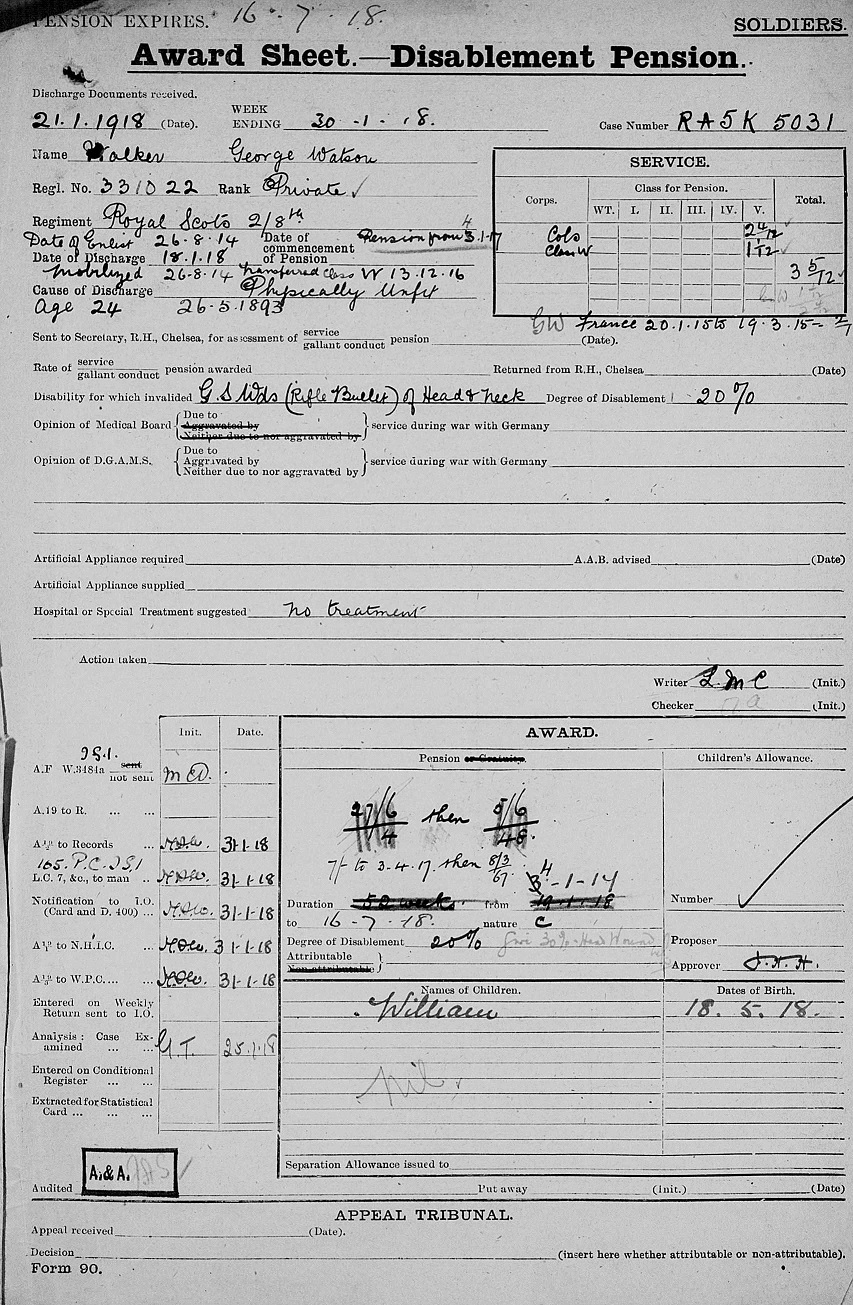 PENSION EXPIRES. 16 - 7 - 18.
SOLDIERS.
Award Sheet.—Disablement Pension.
Discharge Documents received.
21.1.1918 (Date).
WEEK ENDING 30 - 1 - 18.
Case Number RA5K 5031
Name Walker George Watson
Regl. No. 331022 Rank Private
Regiment Royal Scots 2/8th
Date of Enlist 26.8.14
Date of commencement of Pension Pension from 4.1.17
Date of Discharge 18.1.18
Mobilized 26-8-14 Transferred Class W 13.12.16
Cause of Discharge Physically Unfit
Age 24 26-5-1893
SERVICE.
Corps. Class for Pension. Total.
WT. I. II. III. IV. V.
Cols
Class W 1 1/12
3 5/12
GW France 20.1.15 to 19.3.15
Sent to Secretary, R.H., Chelsea, for assessment of service gallant conduct pension (Date).
Rate of service gallant conduct pension awarded Returned from R.H., Chelsea (Date)
Disability for which invalided G.S.Wds (Rifle Bullet) of Head & neck Degree of Disablement 20%
Opinion of Medical Board Due to
Aggravated by
Neither due to nor aggravated by
service during war with Germany
Opinion of D.G.A.M.S. Due to
Aggravated by
Neither due to nor aggravated by
service during war with Germany
Artificial Appliance required A.A.B. advised (Date)
Artificial Appliance supplied
Hospital or Special Treatment suggested no treatment
Action taken
Writer (Init.)
Checker (Init.)
Init. Date.
A.F W.3484a sent not sent
A.19 to R. ... ...
to Records ... 31-1-18
L.C. 7, &c., to man .. 31-1-18
Notification to I.O. (Card and D. 400) ... 31-1-18
to N.H.I.C. ... 31-1-18
to W.P.C.... ... 31-1-18
Entered on Weekly Return sent to I.O.
Analysis: Case Examined ... ... G.T. 25.1.18
Entered on Conditional Register ... ...
Extracted for Statistical Card ... ... ...
AWARD.
Pension or Gratuity. Children's Allowance.
27/6 then
4
7/- to 3-4-17. then
Duration 52 weeks from 19.1.18
to 16 - 7 - 18. nature C
Degree of Disablement 20%
Attributable
Non-attributable
Number
Proposer
Approver
Names of Children. Dates of Birth.
William 18. 5. 18.
nil
Separation Allowance issued to
A. & A.
Audited Put away (Init.) (Date)
APPEAL TRIBUNAL.
Appeal received (Date).
Decision (insert here whether attributable or non-attributable).
Form 90.